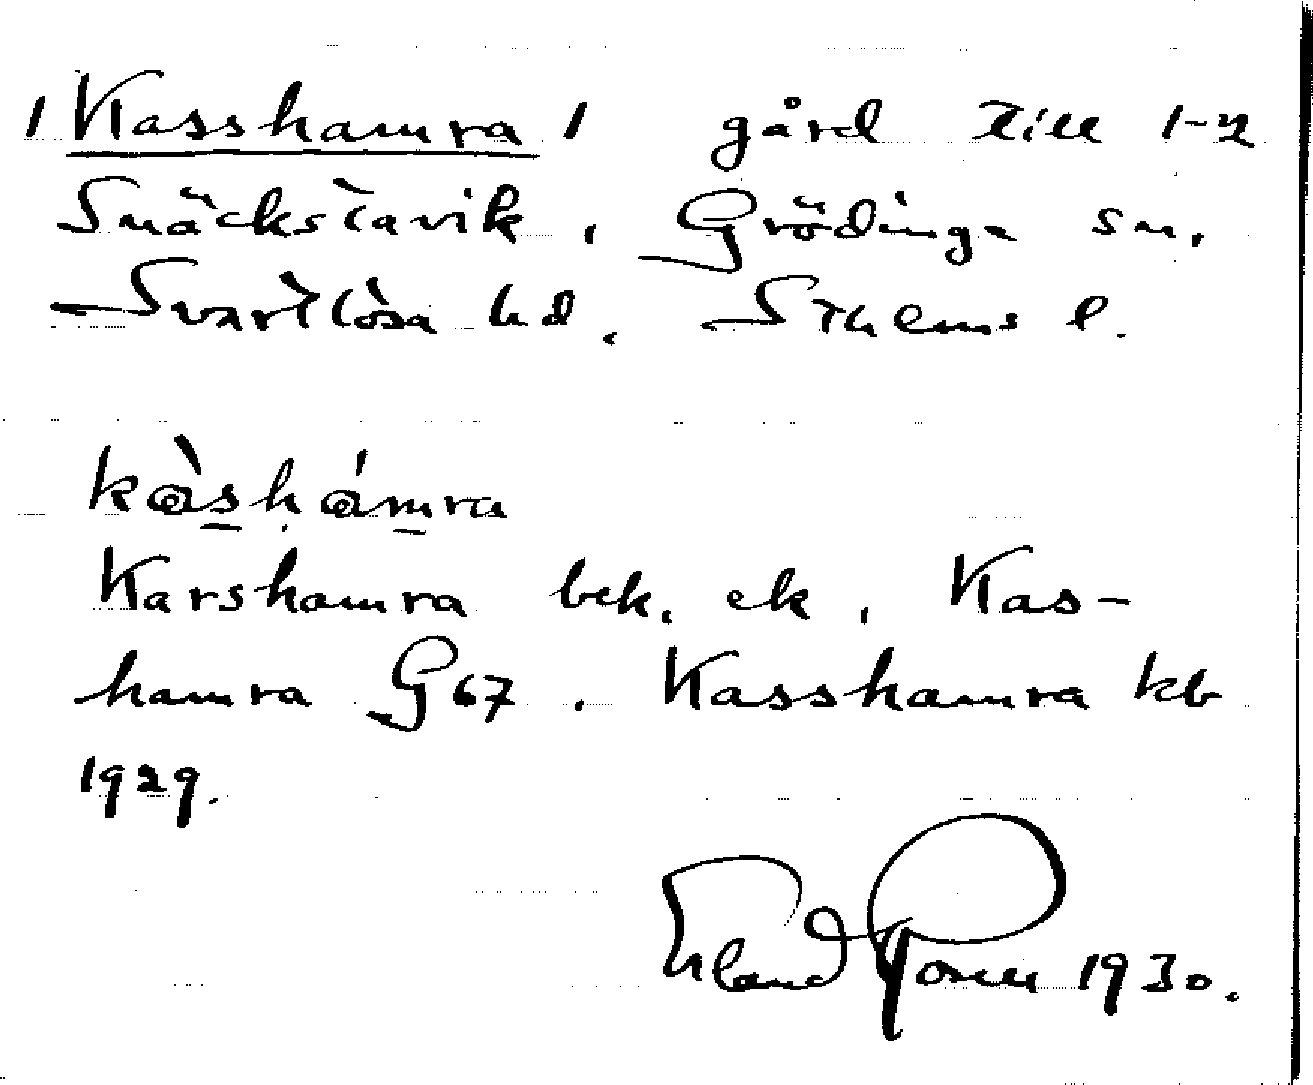 /Kasshamra/ gård till 1-2
Snäckstavik, Grödinge sn,
Svartlösa hd, Sthlms l.
kàshámra
Karshamra bek. ek, Kas-
hamra G67. Kasshamra kb
1929.
Erland Rosell 1930.